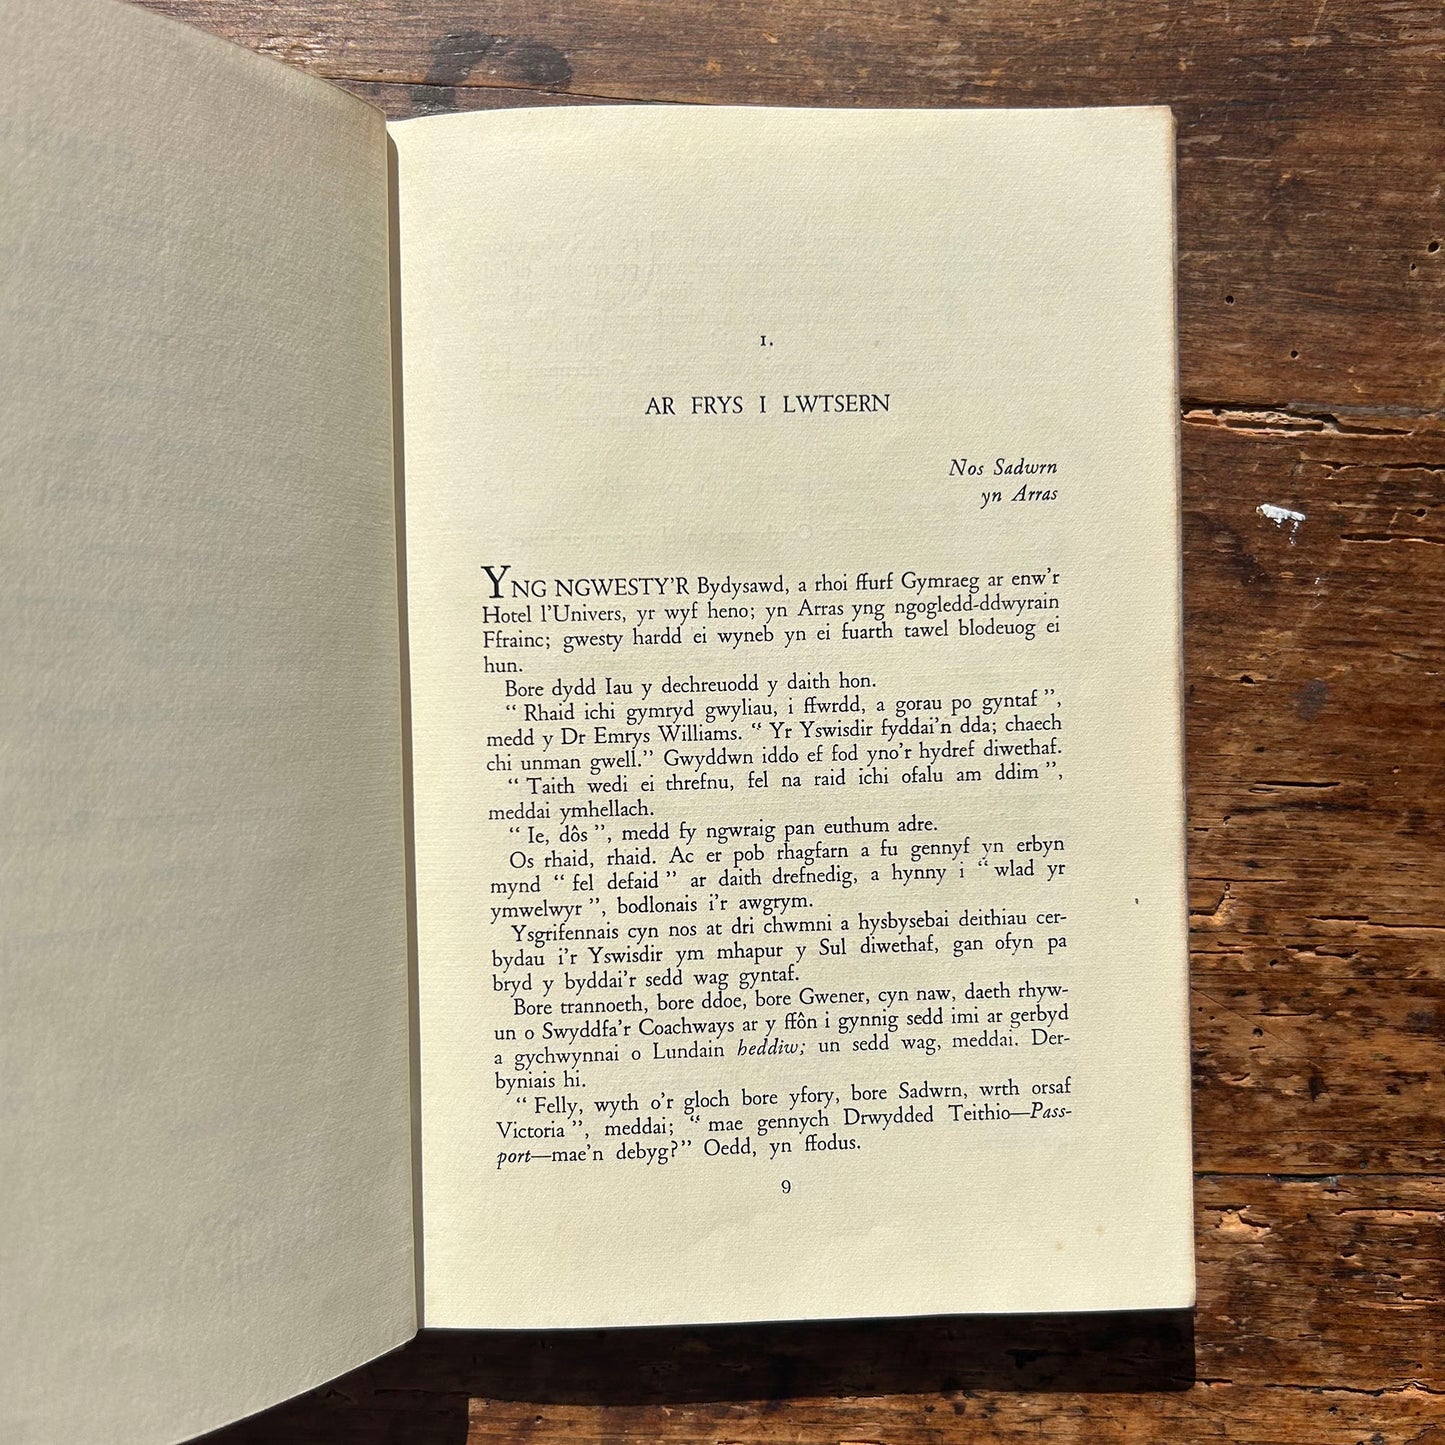 1.
AR FRYS I LWTSERN
Nos Sadwrn
yn Arras
YNG NGWESTY'R Bydysawd, a rhoi ffurf Gymraeg ar enw'r
Hotel l'Univers, yr wyf heno; yn Arras yng ngogledd-ddwyrain
Ffrainc; gwesty hardd ei wyneb yn ei fuarth tawel blodeuog ei
hun.
Bore dydd Iau y dechreuodd y daith hon.
“ Rhaid ichi gymryd gwyliau, i ffwrdd, a gorau po gyntaf ”,
medd y Dr Emrys Williams. “ Yr Yswisdir fyddai'n dda; chaech
chi unman gwell.” Gwyddwn iddo ef fod yno'r hydref diwethaf.
“ Taith wedi ei threfnu, fel na raid ichi ofalu am ddim ”,
meddai ymhellach.
“ Ie, dôs ”, medd fy ngwraig pan euthum adre.
Os rhaid, rhaid. Ac er pob rhagfarn a fu gennyf yn erbyn
mynd “ fel defaid ” ar daith drefnedig, a hynny i “ wlad yr
ymwelwyr ”, bodlonais i'r awgrym.
Ysgrifennais cyn nos at dri chwmni a hysbysebai deithiau cer-
bydau i'r Yswisdir ym mhapur y Sul diwethaf, gan ofyn pa
bryd y byddai'r sedd wag gyntaf.
Bore trannoeth, bore ddoe, bore Gwener, cyn naw, daeth rhyw-
un o Swyddfa'r Coachways ar y ffôn i gynnig sedd imi ar gerbyd
a gychwynnai o Lundain heddiw; un sedd wag, meddai. Der-
byniais hi.
“ Felly, wyth o'r gloch bore yfory, bore Sadwrn, wrth orsaf
Victoria ”, meddai; “ mae gennych Drwydded Teithio—Pass-
port—mae'n debyg?” Oedd, yn ffodus.
9